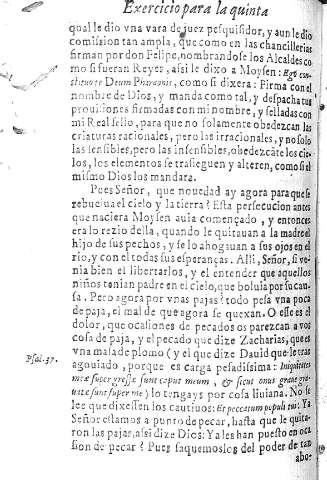 Exercicio para la quinta
qual le dio vna vara de juez pesquisidor, y aun le dio
comission tan ampla, que como en las chancillerias
firman por don Felipe, nombrandose los Alcaldes co
mo si fueran Reyes, assi le dixo a Moysen: Ego con-
stitui te Deum Pharaonis, como si dixera: Firma con el
nombre de Dios, y manda como tal, y despacha tus
prouisiones firmadas con mi nombre, y selladas con
mi Real sello, para que no solamente obedezcan las
criaturas racionales, pero las irracionales, y no solo
las sensibles, pero las insensibles, obedezcāte los cie-
los, los elementos se trasieguen y alteren, como si el
mismo Dios los mandara.
Pues Señor, que nouedad ay agora para que se
rebuelua el cielo y la tierra? Esta persecucion antes
que naciera Moysen auia començado, y entonces
era lo rezio della, quando le quitauan a la madre el
hijo de sus pechos, y se lo ahogauan a sus ojos en el
rio, y con el todas sus esperanças. Alli, Señor, si ve-
nia bien el libertarlos, y el entender que aquellos
niños tenian padre en el cielo, que boluia por su cau-
sa. Pero agora por vnas pajas? todo pesa vna poca
de paja, el mal de que agora se quexan. O esse es el
dolor, que ocasiones de pecados os parezcan a vos
cosa de paja, y el pecado que dize Zacharias, que es
vna mala de plomo (y el que dize Dauid que le trae
agouiado, porque es carga pesadissima: Iniquitates
Psal. 37.
meæ supergressæ sunt caput meum, & sicut onus graue gra-
uatæ sunt super me) lo tengays por cosa liuiana. No se
lee que dixessen los cautiuos: Et peccatum populi tui: Ya
Señor estamos a punto de pecar, hasta que le quita-
ron las pajas, assi dize Dios: Ya les han puesto en oca
sion de pecar? Pues saquemoslos del poder de tan
abo-